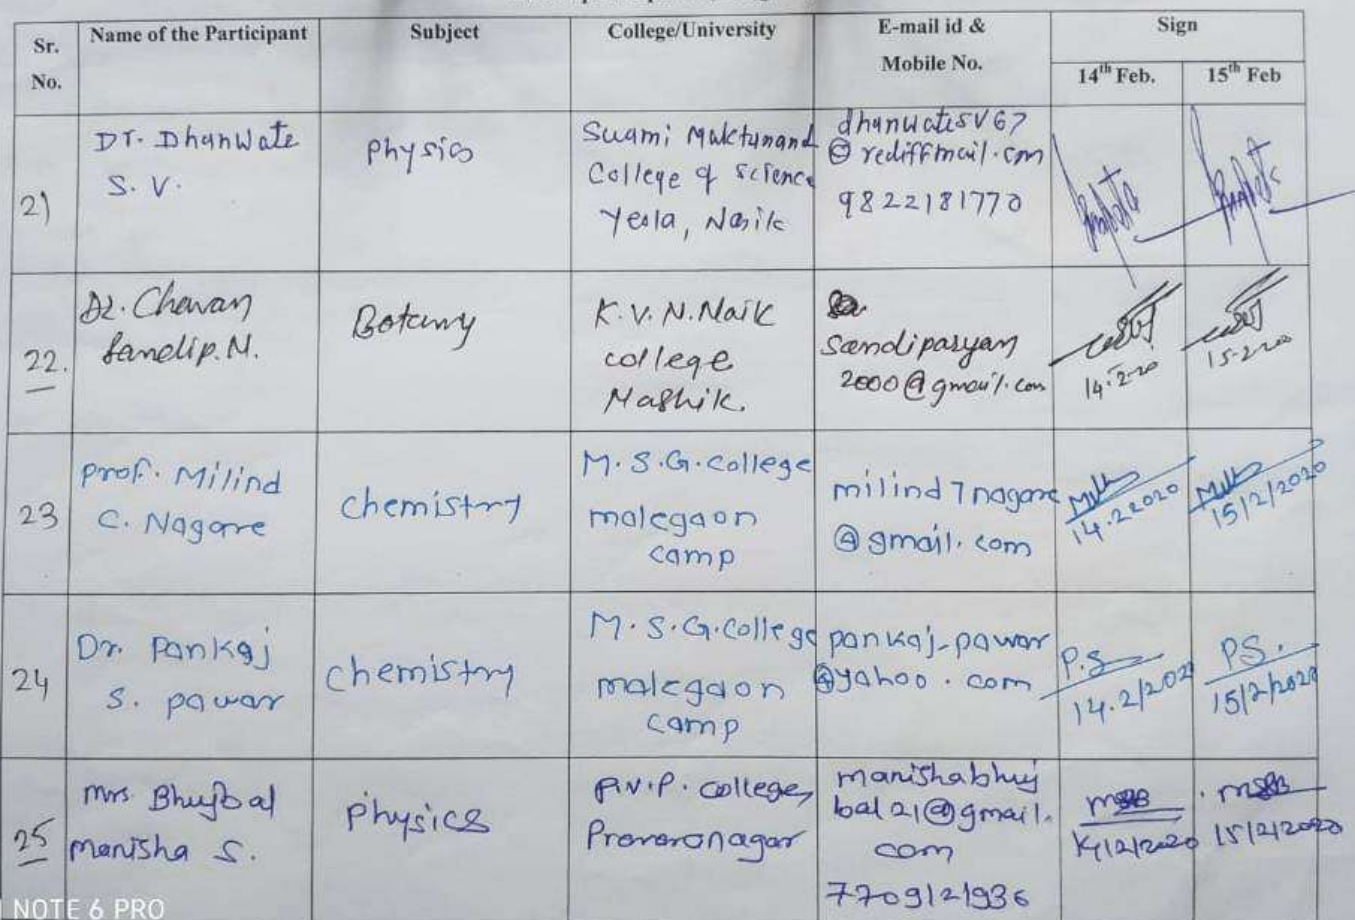 Sr. No.
Name of the Participant
Subject
College/University
E-mail id &
Mobile No.
Sign
14th Feb.
15th Feb
21
Dr. Dhanwate
S. V.
Physics
Swami Muktanand
College of Science
Yeola, Nasik
dhanwatesv67
@ rediffmail.com
9822181770
22.
Dr. Chavan
Sandip. M.
Botany
K. V. N. Naik
college
Nashik.
Sandiparyan
2000@gmail.com
14-2-20
15-2-20
23
Prof. Milind
C. Nagare
chemistry
M. S. G. college
malegaon
camp
milind7nagare
@gmail.com
14.2.2020
15/2/2020
24
Dr. Pankaj
S. pawar
chemistry
M. S. G. college
malegaon
camp
pankaj-pawar
@yahoo.com
P.S
14.2/2020
P.S.
15/2/2020
25
Mrs. Bhujbal
Manisha S.
Physics
P.V.P. college,
Pravaranagar
manishabhuj
bal21@gmail.
com
7709121936
14/2/2020
15/2/2020
NOTE 6 PRO